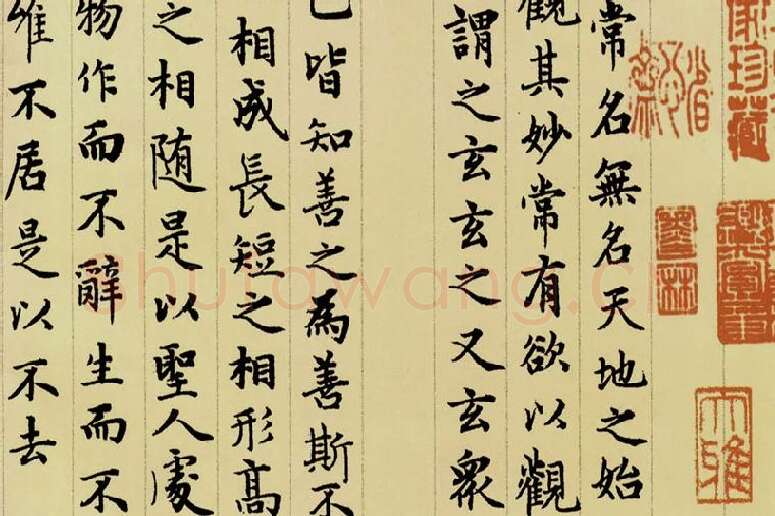 常名無名天地之始
觀其妙常有欲以觀
謂之玄玄之又玄眾
已皆知善之為善斯不
相成長短之相形高
之相随是以聖人處
物作而不辭生而不
惟不居是以不去
珍藏
大雅
shufawang.cn